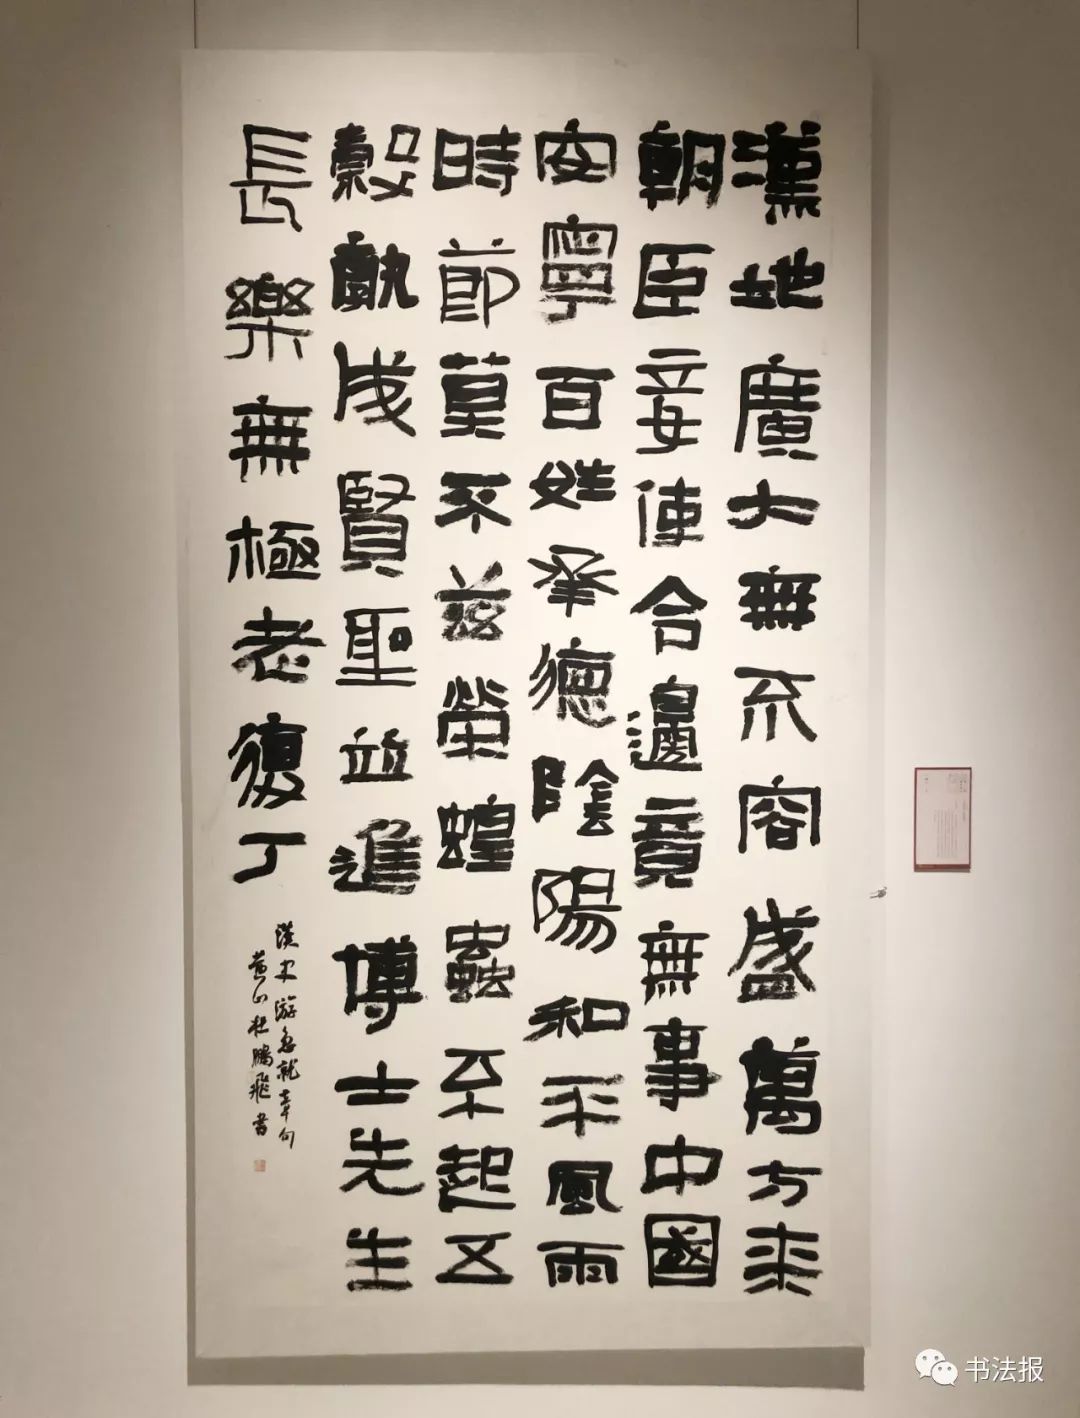 漢地廣大無不容盛萬方來
朝臣妾使令邊竟無事中國
安寧百姓承德陰陽和平風雨
時節莫不茲榮蝗蟲不起五
穀孰成賢聖並進博士先生
長樂無極老復丁
漢史游急就章句
黄山杜鵬飛書
书法报